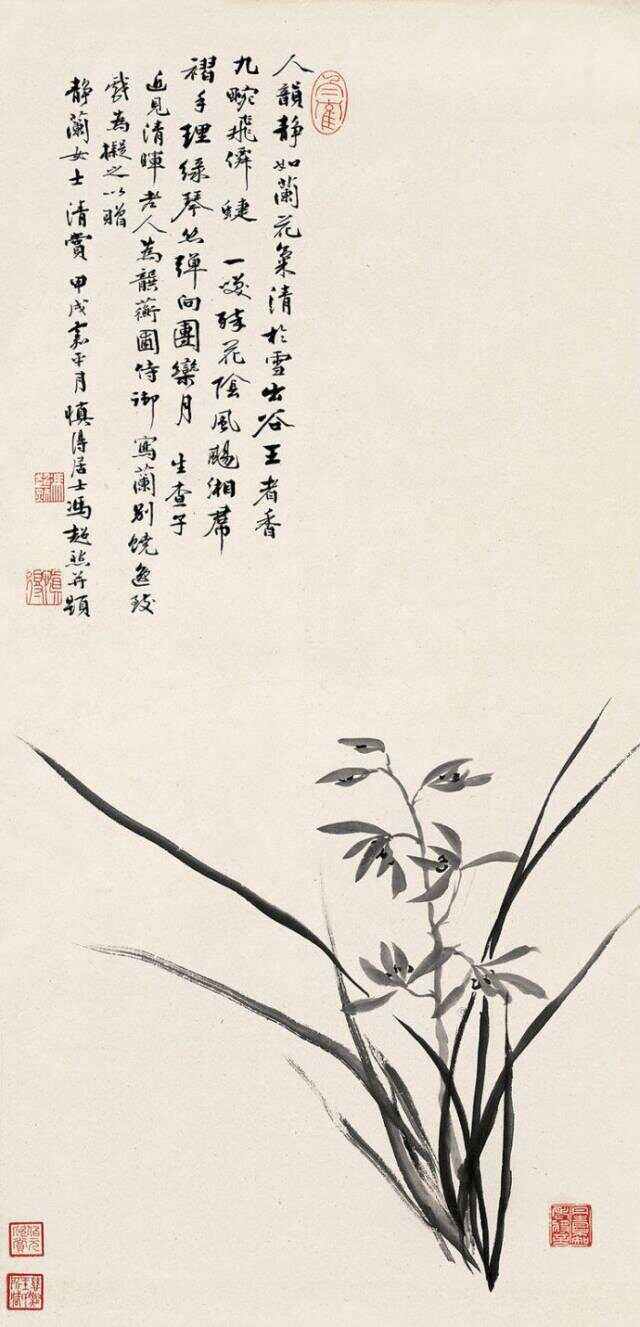 人韻静如蘭花氣清於雪出谷王者香
九畹飛僊蜨 一煖殘花陰風颺湘帬
褶手理綠琴絲彈向團欒月 生查子
近見清暉老人為韻蘅圖侍御寫蘭別饒逸致
戲為擬之以贈
静蘭女士清賞 甲戌嘉平月慎得居士馮超然并題